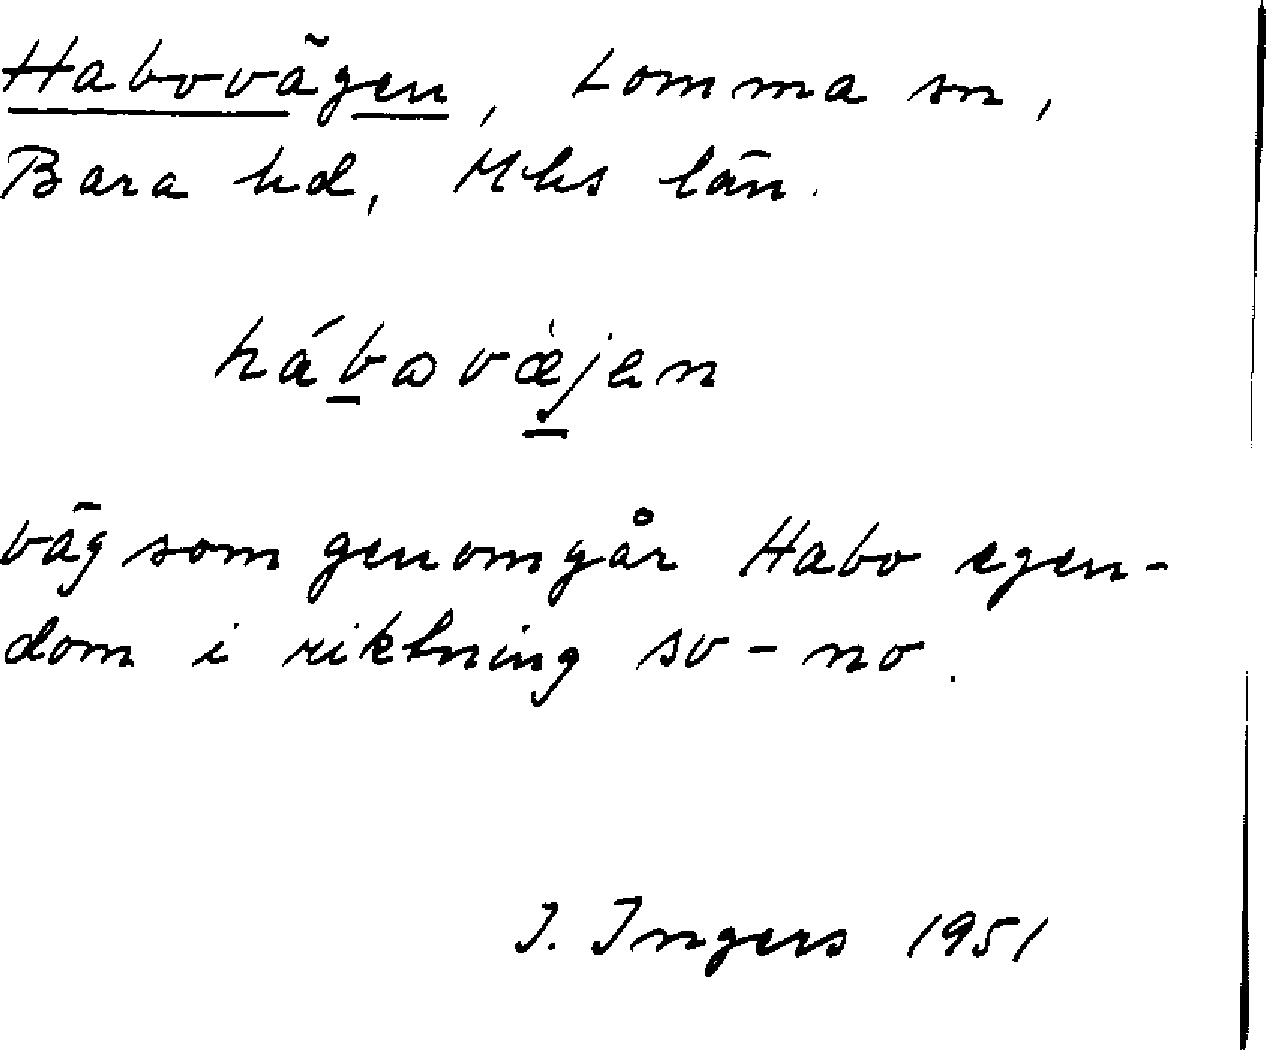 Habovägen, Lomma sn,
Bara hd, Mhs län.
hábovæ̀jen
väg som genomgår Habo egen-
dom i riktning sv-no.
I. Ingers 1951